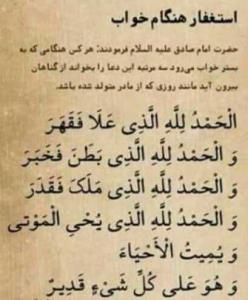 استغفار هنگام خواب
حضرت امام صادق علیه السلام فرمودند: هر کس هنگامی که به
بستر خواب می‌رود سه مرتبه این دعا را بخواند از گناهان
بیرون آید مانند روزی که از مادر متولد شده باشد.
الْحَمْدُ لِلَّهِ الَّذِی عَلَا فَقَهَرَ
وَ الْحَمْدُ لِلَّهِ الَّذِی بَطَنَ فَخَبَرَ
وَ الْحَمْدُ لِلَّهِ الَّذِی مَلَکَ فَقَدَرَ
وَ الْحَمْدُ لِلَّهِ الَّذِی یُحْیِ الْمَوْتَی
وَ یُمِیتُ الْأَحْیَاءَ
وَ هُوَ عَلَی کُلِّ شَیْءٍ قَدِیرٌ